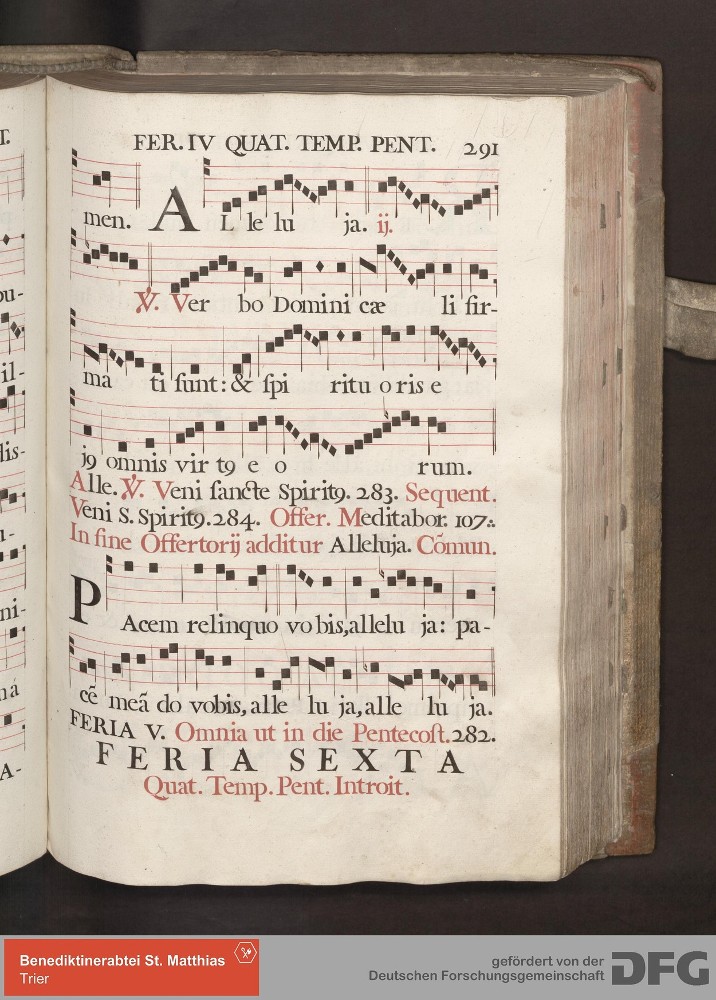 FER. IV QUAT. TEMP. PENT. 291
men. AL le lu ja. ij.
℣. Ver bo Domini cæ li fir-
ma ti sunt: & spi ritu o ris e
j9 omnis vir t9 e o rum.
Alle. ℣. Veni sancte Spirit9. 283. Sequent.
Veni S. Spirit9. 284. Offer. Meditabor. 107.
In fine Offertorij additur Alleluja. Cõmun.
PAcem relinquo vo bis, allelu ja: pa-
cẽ meã do vobis, alle lu ja, alle lu ja.
FERIA V. Omnia ut in die Pentecost. 282.
FERIA SEXTA
Quat. Temp. Pent. Introit.
Benediktinerabtei St. Matthias
Trier
gefördert von der
Deutschen Forschungsgemeinschaft DFG